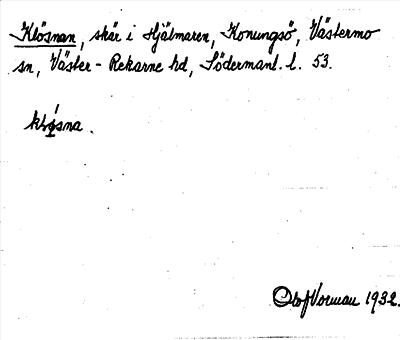 Klösnan, skär i Hjälmaren, Konungsö, Västermo
sn, Väster-Rekarne hd, Södermanl. l. 53.
klø̀sna.
Olof Vorman 1932.